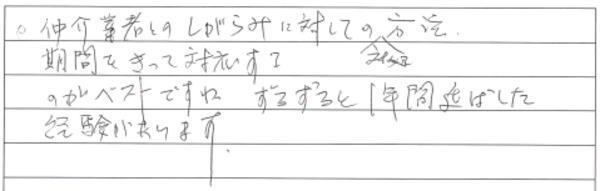 ○ 仲介業者とのしがらみに対しての対処方法.
期間をきって対応する
のがベストですね ずるずると1年間延ばした
経験があります.